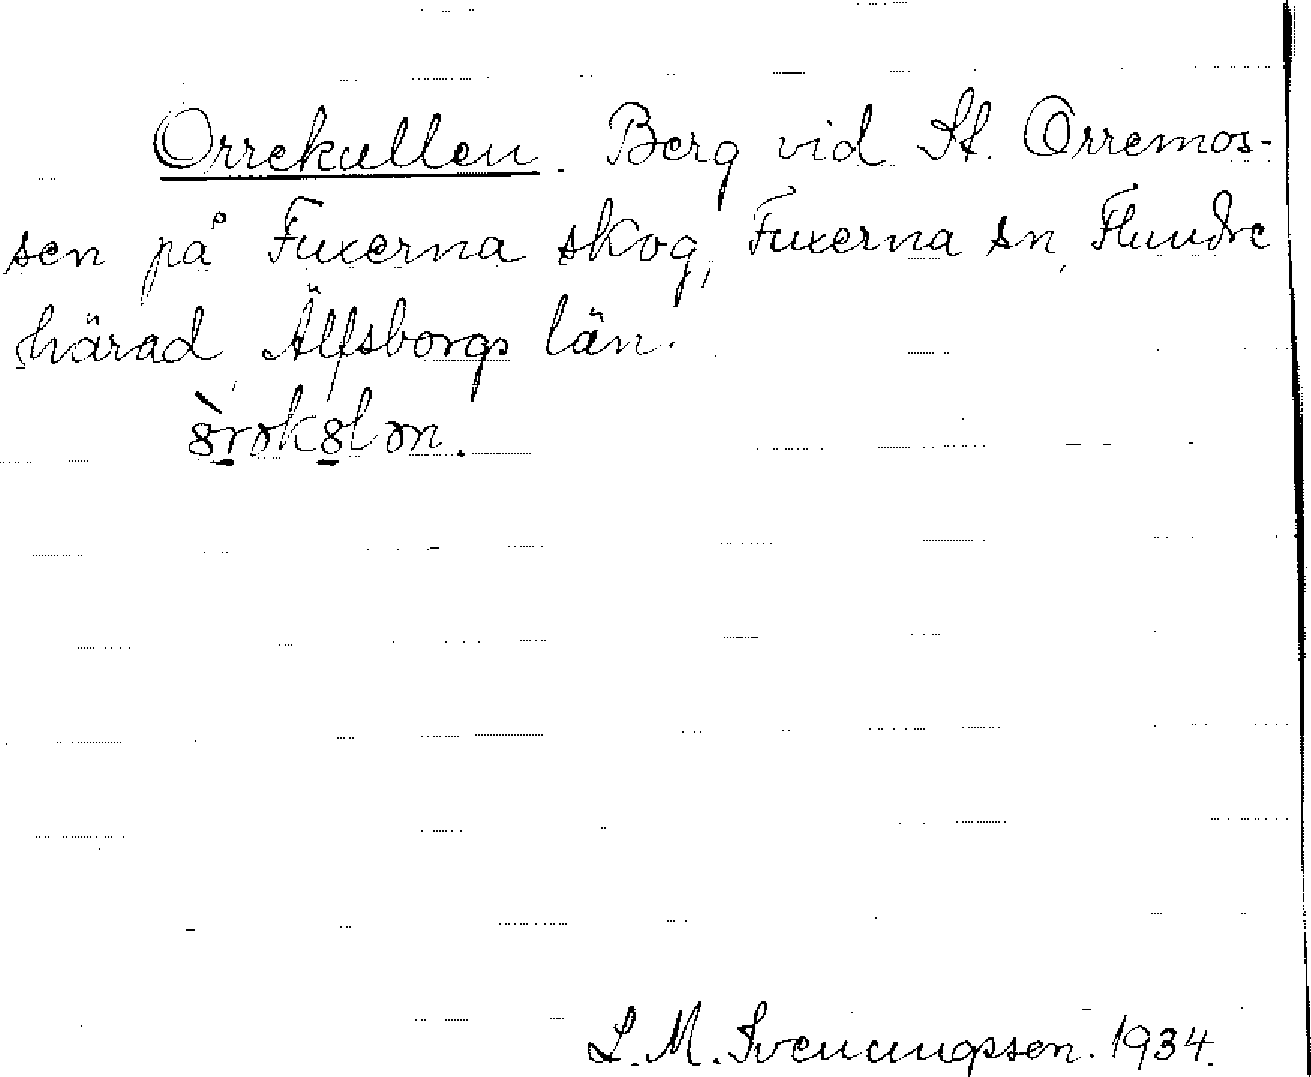 Orrekullen. Berg vid St. Orremos-
sen på Fuxerna skog, Fuxerna sn, Flundre
härad Älfsborgs län.
L. M. Svenungsson. 1934.